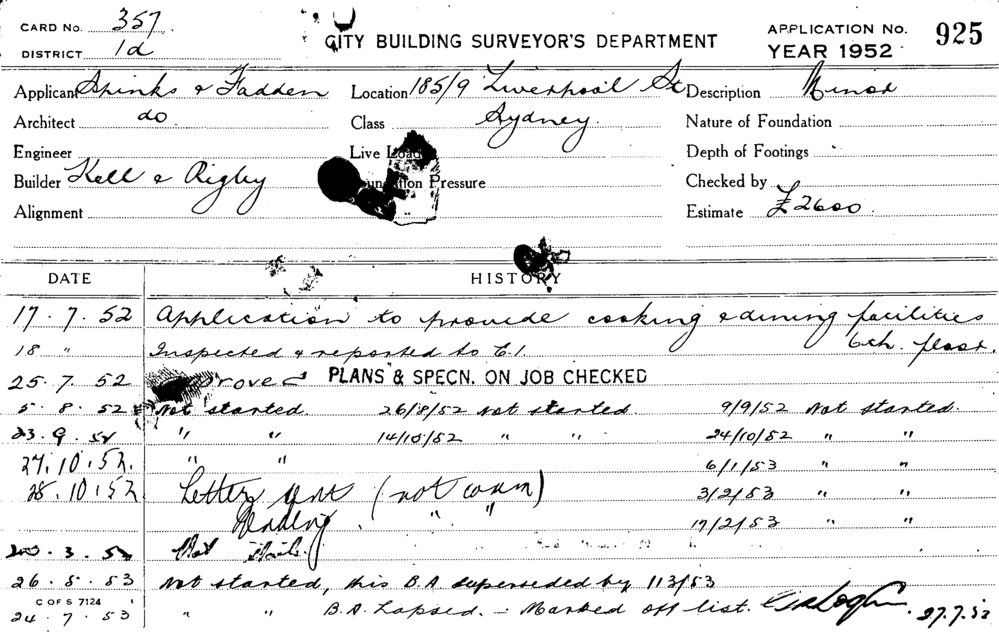 CARD No. 357
DISTRICT 1d
CITY BUILDING SURVEYOR'S DEPARTMENT
APPLICATION No. 925
YEAR 1952
Applicant Spinks & Fadden Location 185/9 Liverpool St Description Minor
Architect do Class Sydney. Nature of Foundation
Engineer Live Load Depth of Footings
Builder Kell & Rigby Foundation Pressure Checked by
Alignment Estimate £2600.
DATE HISTORY
17.7.52 Application to provide cooking & dining facilities
18 " Inspected & reported to C.I. 6th. floor.
25.7.52 Approved PLANS & SPECN. ON JOB CHECKED
5.8.52 Not started. 26/8/52 Not started. 9/9/52 Not started.
23.9.52 " " 14/10/52 " " 24/10/52 " "
27.10.52. " " 6/1/53 " "
28.10.52 Letter sent (not comm) 3/2/53 " "
Pending. " " 17/2/53 " "
3.53 Not
26.5.53 Not started, this B.A superseded by 113/53
C OF S 7124
24.7.53 " " B.A. Lapsed. - Marked off list. 27.7.53